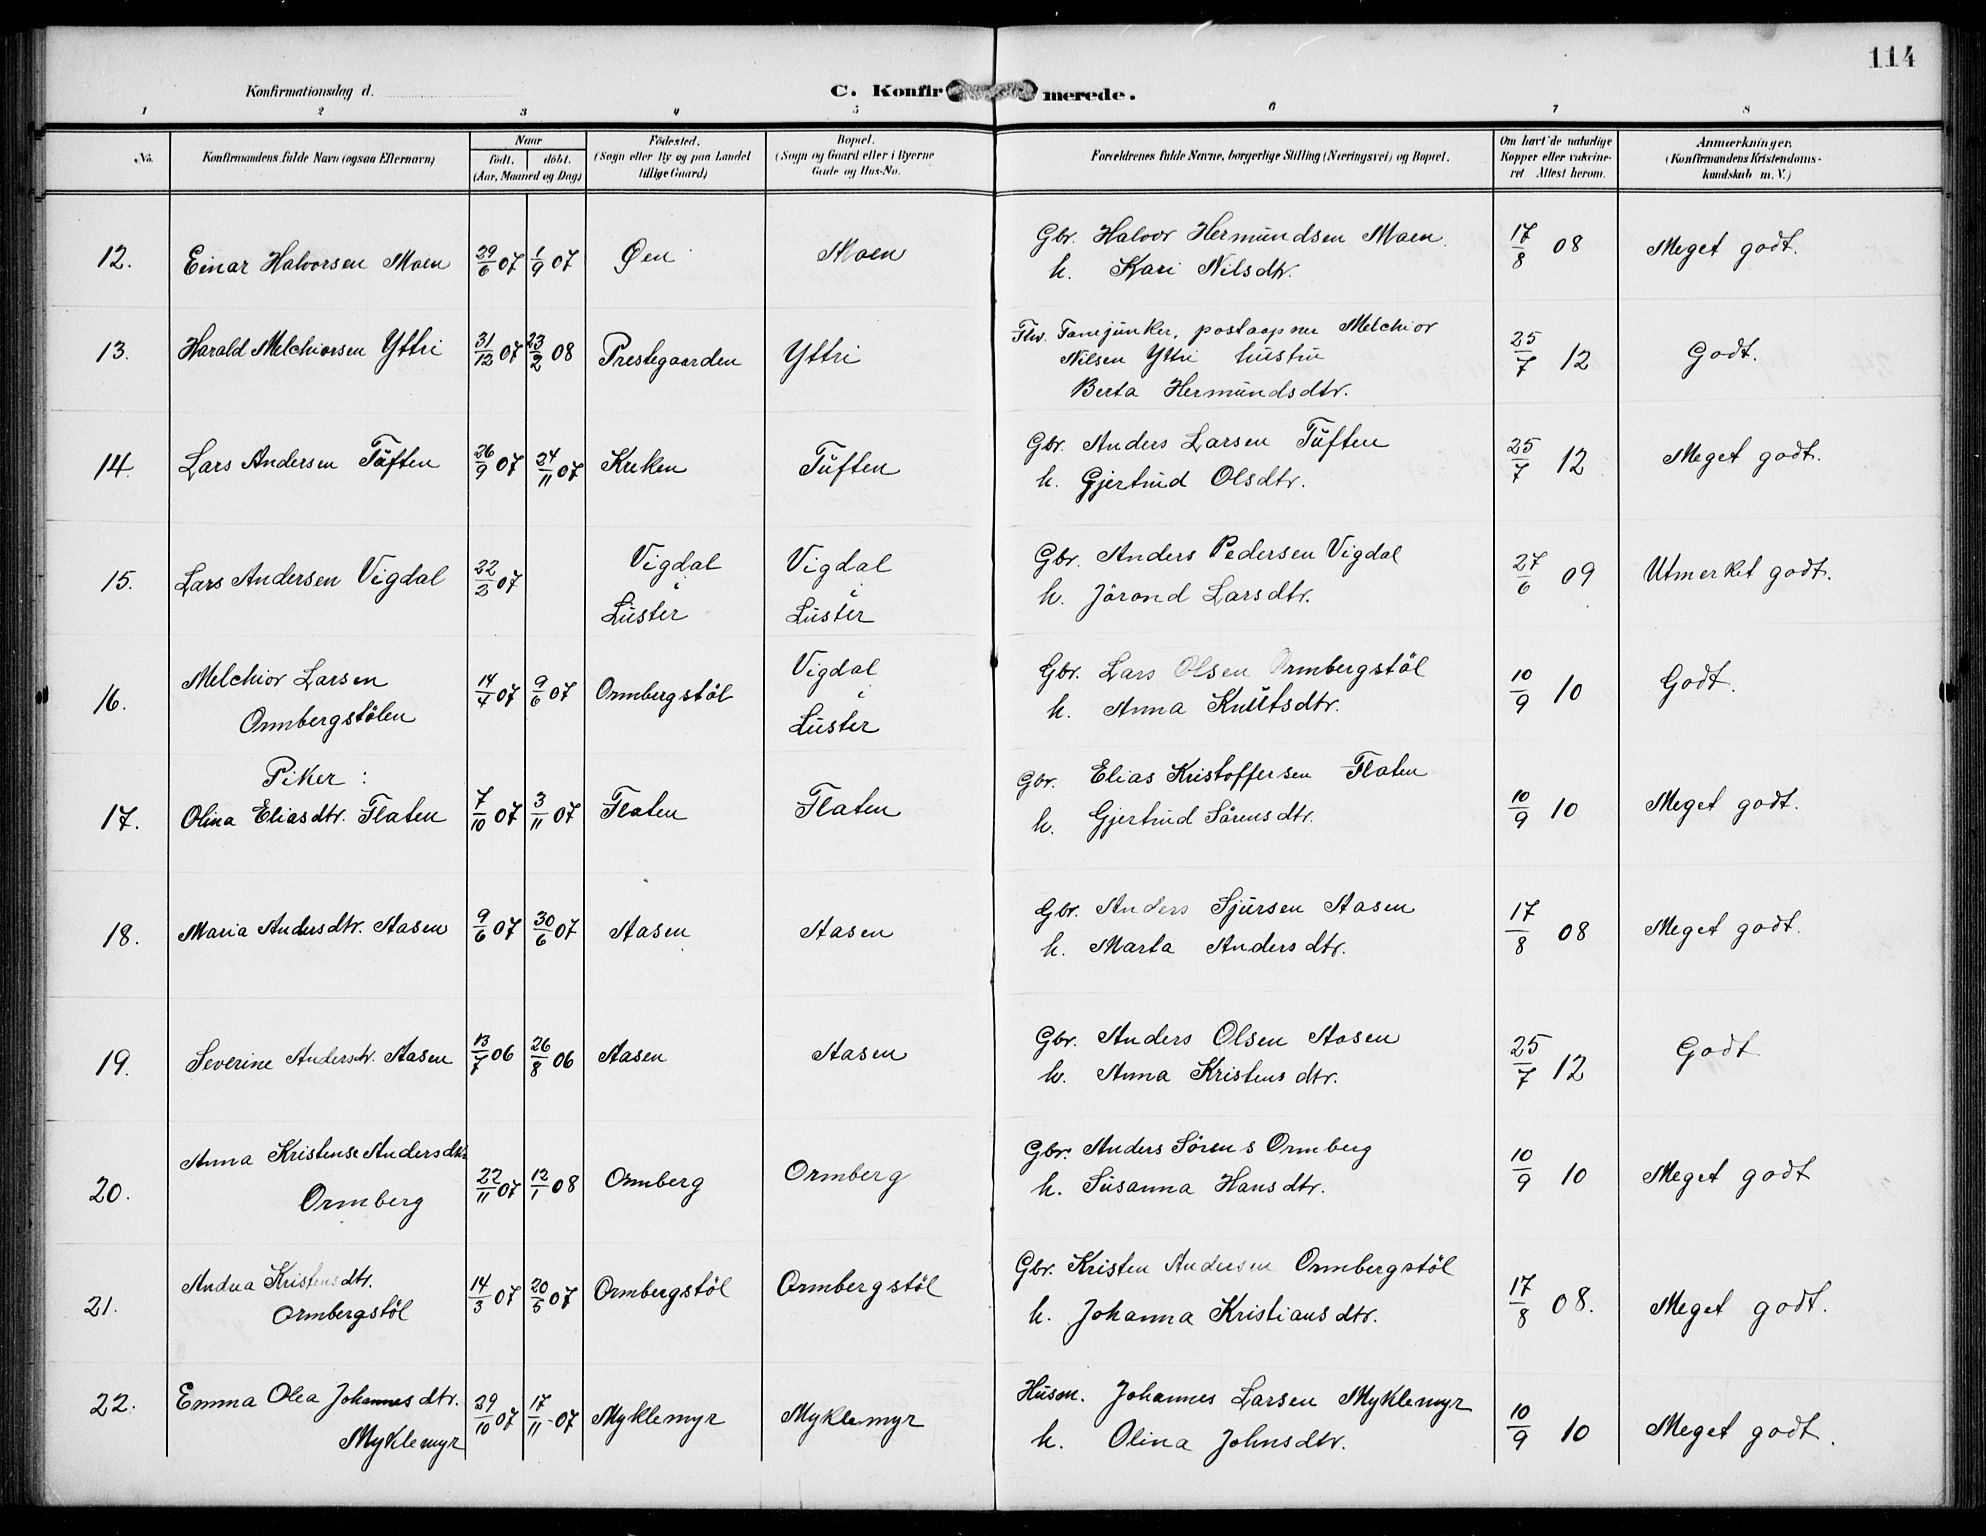 114
Konfirmationsdag d.
C. Konfirmerede.
1 2 3 4 5 6 7 8
No. Konfirmandens fulde Navn (ogsaa Efternavn) Naar født. døbt. (Aar, Maaned og Dag) Fødested. (Sogn eller By og paa Landet tillige Gaard) Bopæl. (Sogn og Gaard eller i Byerne Gade og Hus-No. Forældrenes fulde Navne, borgerlige Stilling (Næringsvei) og Bopæl. Om havt de naturlige Kopper eller vakcineret Attest herom. Anmærkninger, (Konfirmandens Kristendomskundskab m. V.)
12. Einar Halvorsen Moen 29/6 07 1/9 07 Øen Moen Gbr. Halvor Hermundsen Moen. 17/8 08 Meget godt.
h. Kari Nilsdtr.
13. Harald Melchiorsen Yttri 31/12 07 23/2 08 Prestegaarden Yttri Fhv. Fanejunker, postaapner Melchior 25/7 12 Godt.
Nilsen Yttri hustru
Berta Hermundsdtr.
14. Lars Andersen Tuften 26/9 07 24/11 07 Kreken Tuften Gbr. Anders Larsen Tuften 25/7 12 Meget godt.
h. Gjertrud Olsdtr.
15. Lars Andersen Vigdal 22/2 07 Vigdal i Luster Vigdal i Luster Gbr. Anders Pedersen Vigdal 27/6 09 Utmerket godt.
h. Jörond Larsdtr.
16. Melchior Larsen Ormbergstölen 14/4 07 9/6 07 Ormbergstöl Vigdal i Luster Gbr. Lars Olsen Ormbergstöl 10/9 10 Godt.
h. Anna Knutsdtr.
Piker :
17. Olina Eliasdtr. Flaten 7/10 07 3/11 07 Flaten Flaten Gbr. Elias Kristoffersen Flaten 10/9 10 Meget godt.
h. Gjertrud Sörensdtr.
18. Maria Andersdtr. Aasen 9/6 07 30/6 07 Aasen Aasen Gbr. Anders Sjursen Aasen 17/8 08 Meget godt.
h. Marta Andersdtr.
19. Severine Andersdtr. Aasen 13/7 06 26/8 06 Aasen Aasen Gbr. Anders Olsen Aasen 25/7 12 Godt
h. Anna Kristensdtr.
20. Anna Kristense Andersdtr Ormberg 22/11 07 12/1 08 Ormberg Ormberg Gbr. Anders Sörens Ormberg 10/9 10 Meget godt
h. Susanna Hansdtr.
21. Andua Kristensdtr. Ormbergstöl 14/3 07 20/5 07 Ormbergstöl Ormbergstöl Gbr. Kristen Andersen Ormbergstöl 17/8 08. Meget godt.
h. Johanna Kristiansdtr.
22. Emma Olea Johannesdtr. Myklemyr 29/10 07 17/11 07 Myklemyr Myklemyr Husm. Johannes Larsen Myklemyr 10/9 10 Meget godt.
h. Olina Johnsdtr.